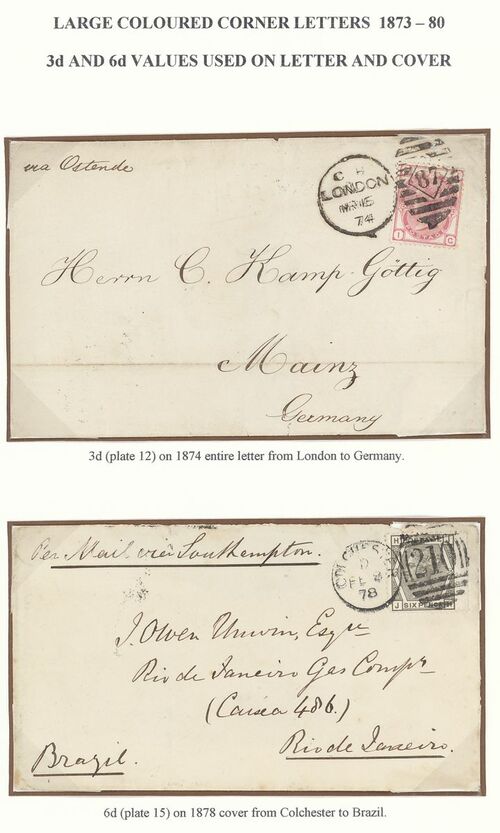 LARGE COLOURED CORNER LETTERS 1873 – 80
3d AND 6d VALUES USED ON LETTER AND COVER
via Ostende
LONDON
74
87
I C
Herrn C. Kamp-Göttig
Mainz
Germany
3d (plate 12) on 1874 entire letter from London to Germany.
Per Mail via Southampton.
COLCHESTER
D
FE 4
78
210
H
J SIX PENCE H
J. Owen Unwin, Esqre
Rio de Janeiro Gas Compy
(Caixa 486.)
Rio de Janeiro.
Brazil.
6d (plate 15) on 1878 cover from Colchester to Brazil.